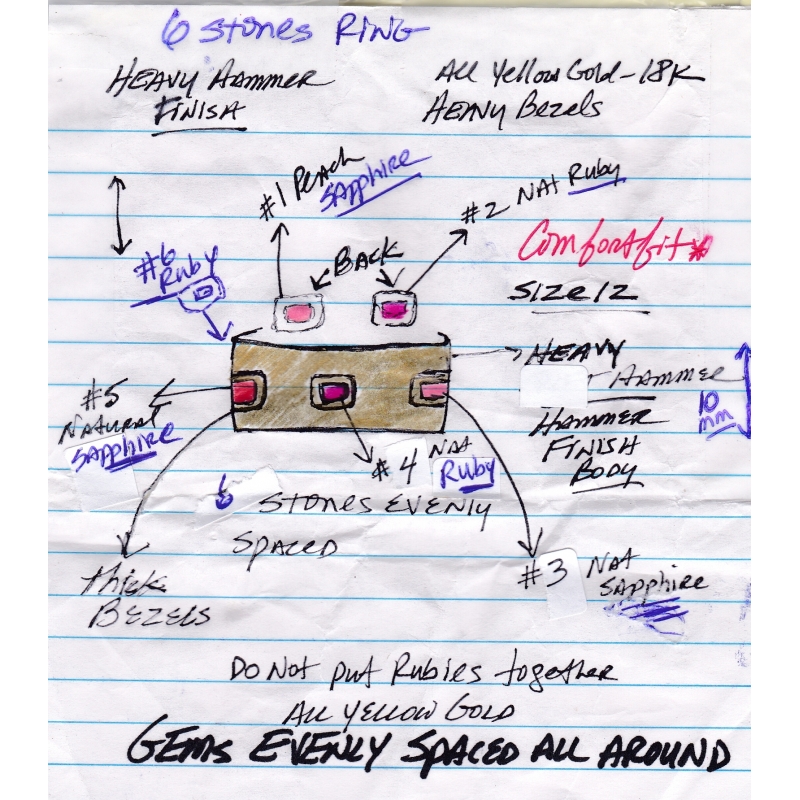 6 Stones RING
HEAVY HAMMER
FINISH
All Yellow Gold-18K
HEAVY Bezels
#1 Peach
SAPPHIRE
#2 NAT Ruby
Comfort fit *
SIZE 12
#6
Ruby
BACK
HEAVY
HAMMER
HAMMER
FINISH
BODY
10
mm
#5
NATURAL
SAPPHIRE
#4 NAT
Ruby
6
STONES EVENLY
SPACED
thick
BEZELS
#3 NAT
SAPPHIRE
DO NOT put Rubies together
All YELLOW GOLD
GEMS EVENLY SPACED ALL AROUND